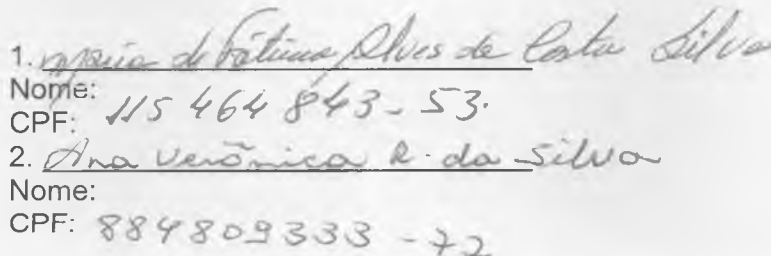 1. Maria de Fátima Alves da Costa Silva
Nome:
CPF: 115 464 843-53.
2. Ana Verônica R. da Silva
Nome:
CPF: 884809333-72